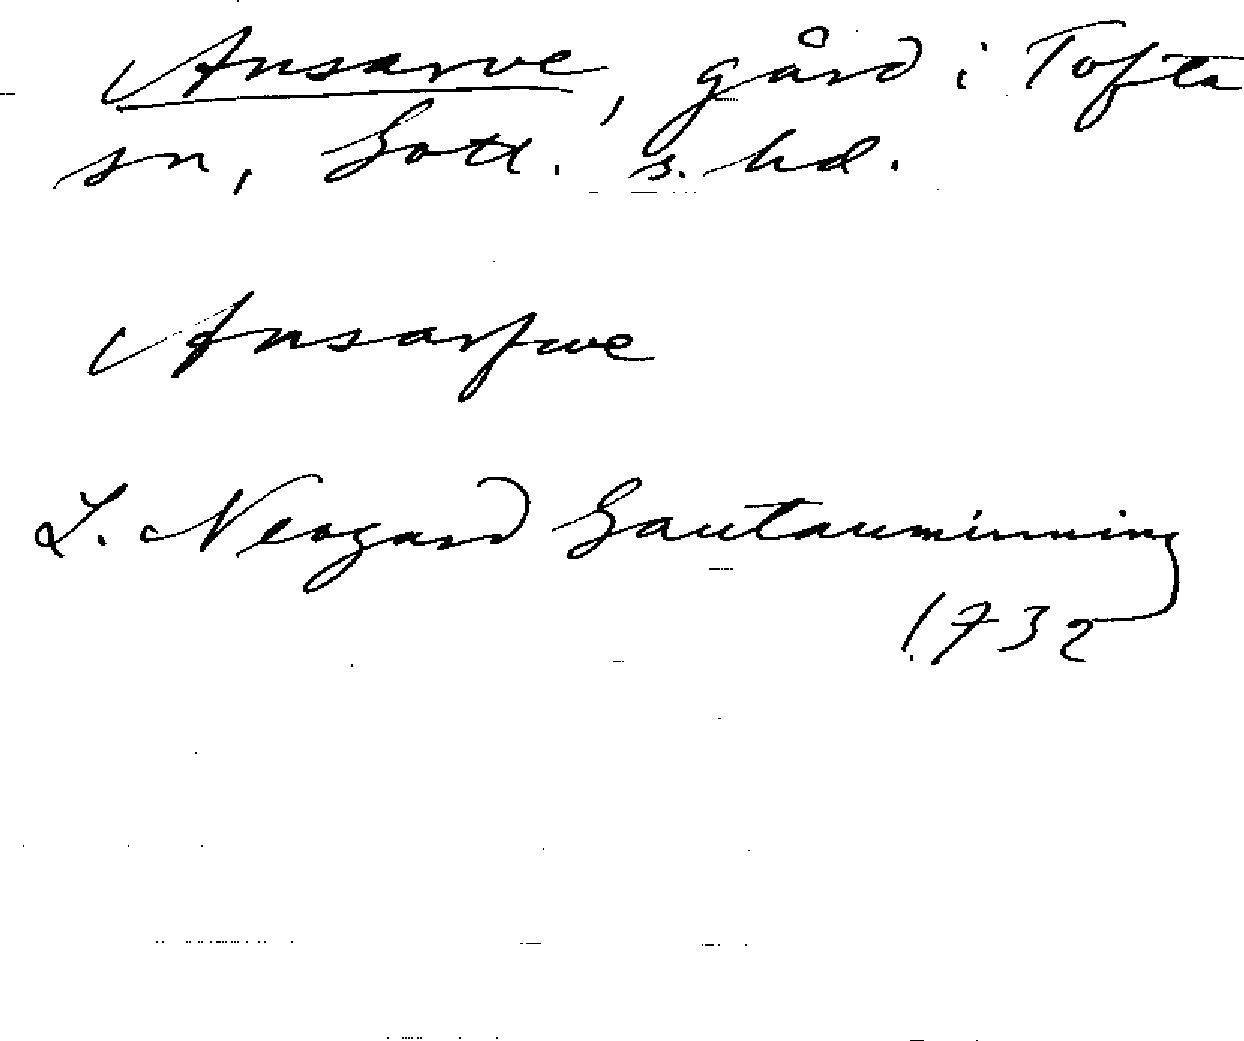 Ansarve, gård i Tofta
sn, Gotl. s. hd.
Ansarfwe
L. Neogard Gautauminning
1732